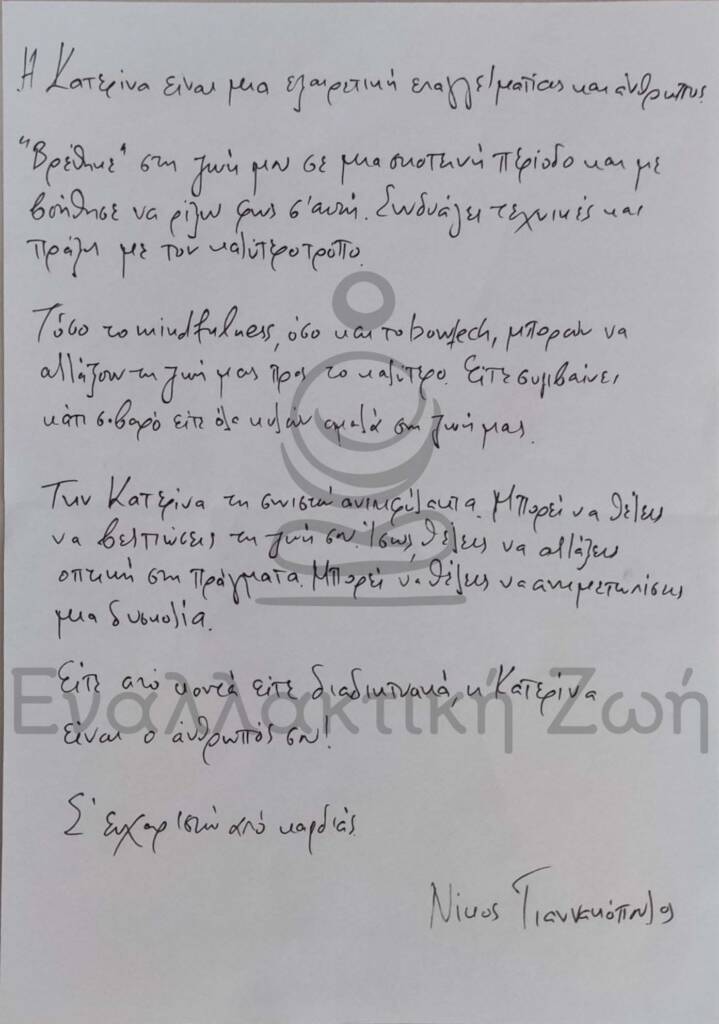 Η Κατερίνα είναι μια εξαιρετική επαγγελματίας και άνθρωπος.
"Βρέθηκε" στη ζωή μου σε μια σκοτεινή περίοδο και με
βοήθησε να ρίξω φως σ'αυτή. Συνδυάζει τεχνικές και
πράξη με τον καλύτερο τρόπο.
Τόσο το mindfulness, όσο και το bowtech, μπορούν να
αλλάξουν τη ζωή μας προς το καλύτερο. Είτε συμβαίνει
κάτι σοβαρό είτε όλα κυλούν ομαλά στη ζωή μας.
Την Κατερίνα τη συνιστώ ανεπιφύλακτα. Μπορεί να θέλεις
να βελτιώσεις τη ζωή σου. Ίσως, θέλεις να αλλάξεις
οπτική στη πράγματα. Μπορεί να θέλεις να αντιμετωπίσεις
μια δυσκολία.
Εναλλακτική Ζωή
Είτε από κοντά είτε διαδικτυακά, η Κατερίνα
είναι ο άνθρωπός σου!
Σ' ευχαριστώ από καρδιάς.
Νίκος Γιαννακόπουλος